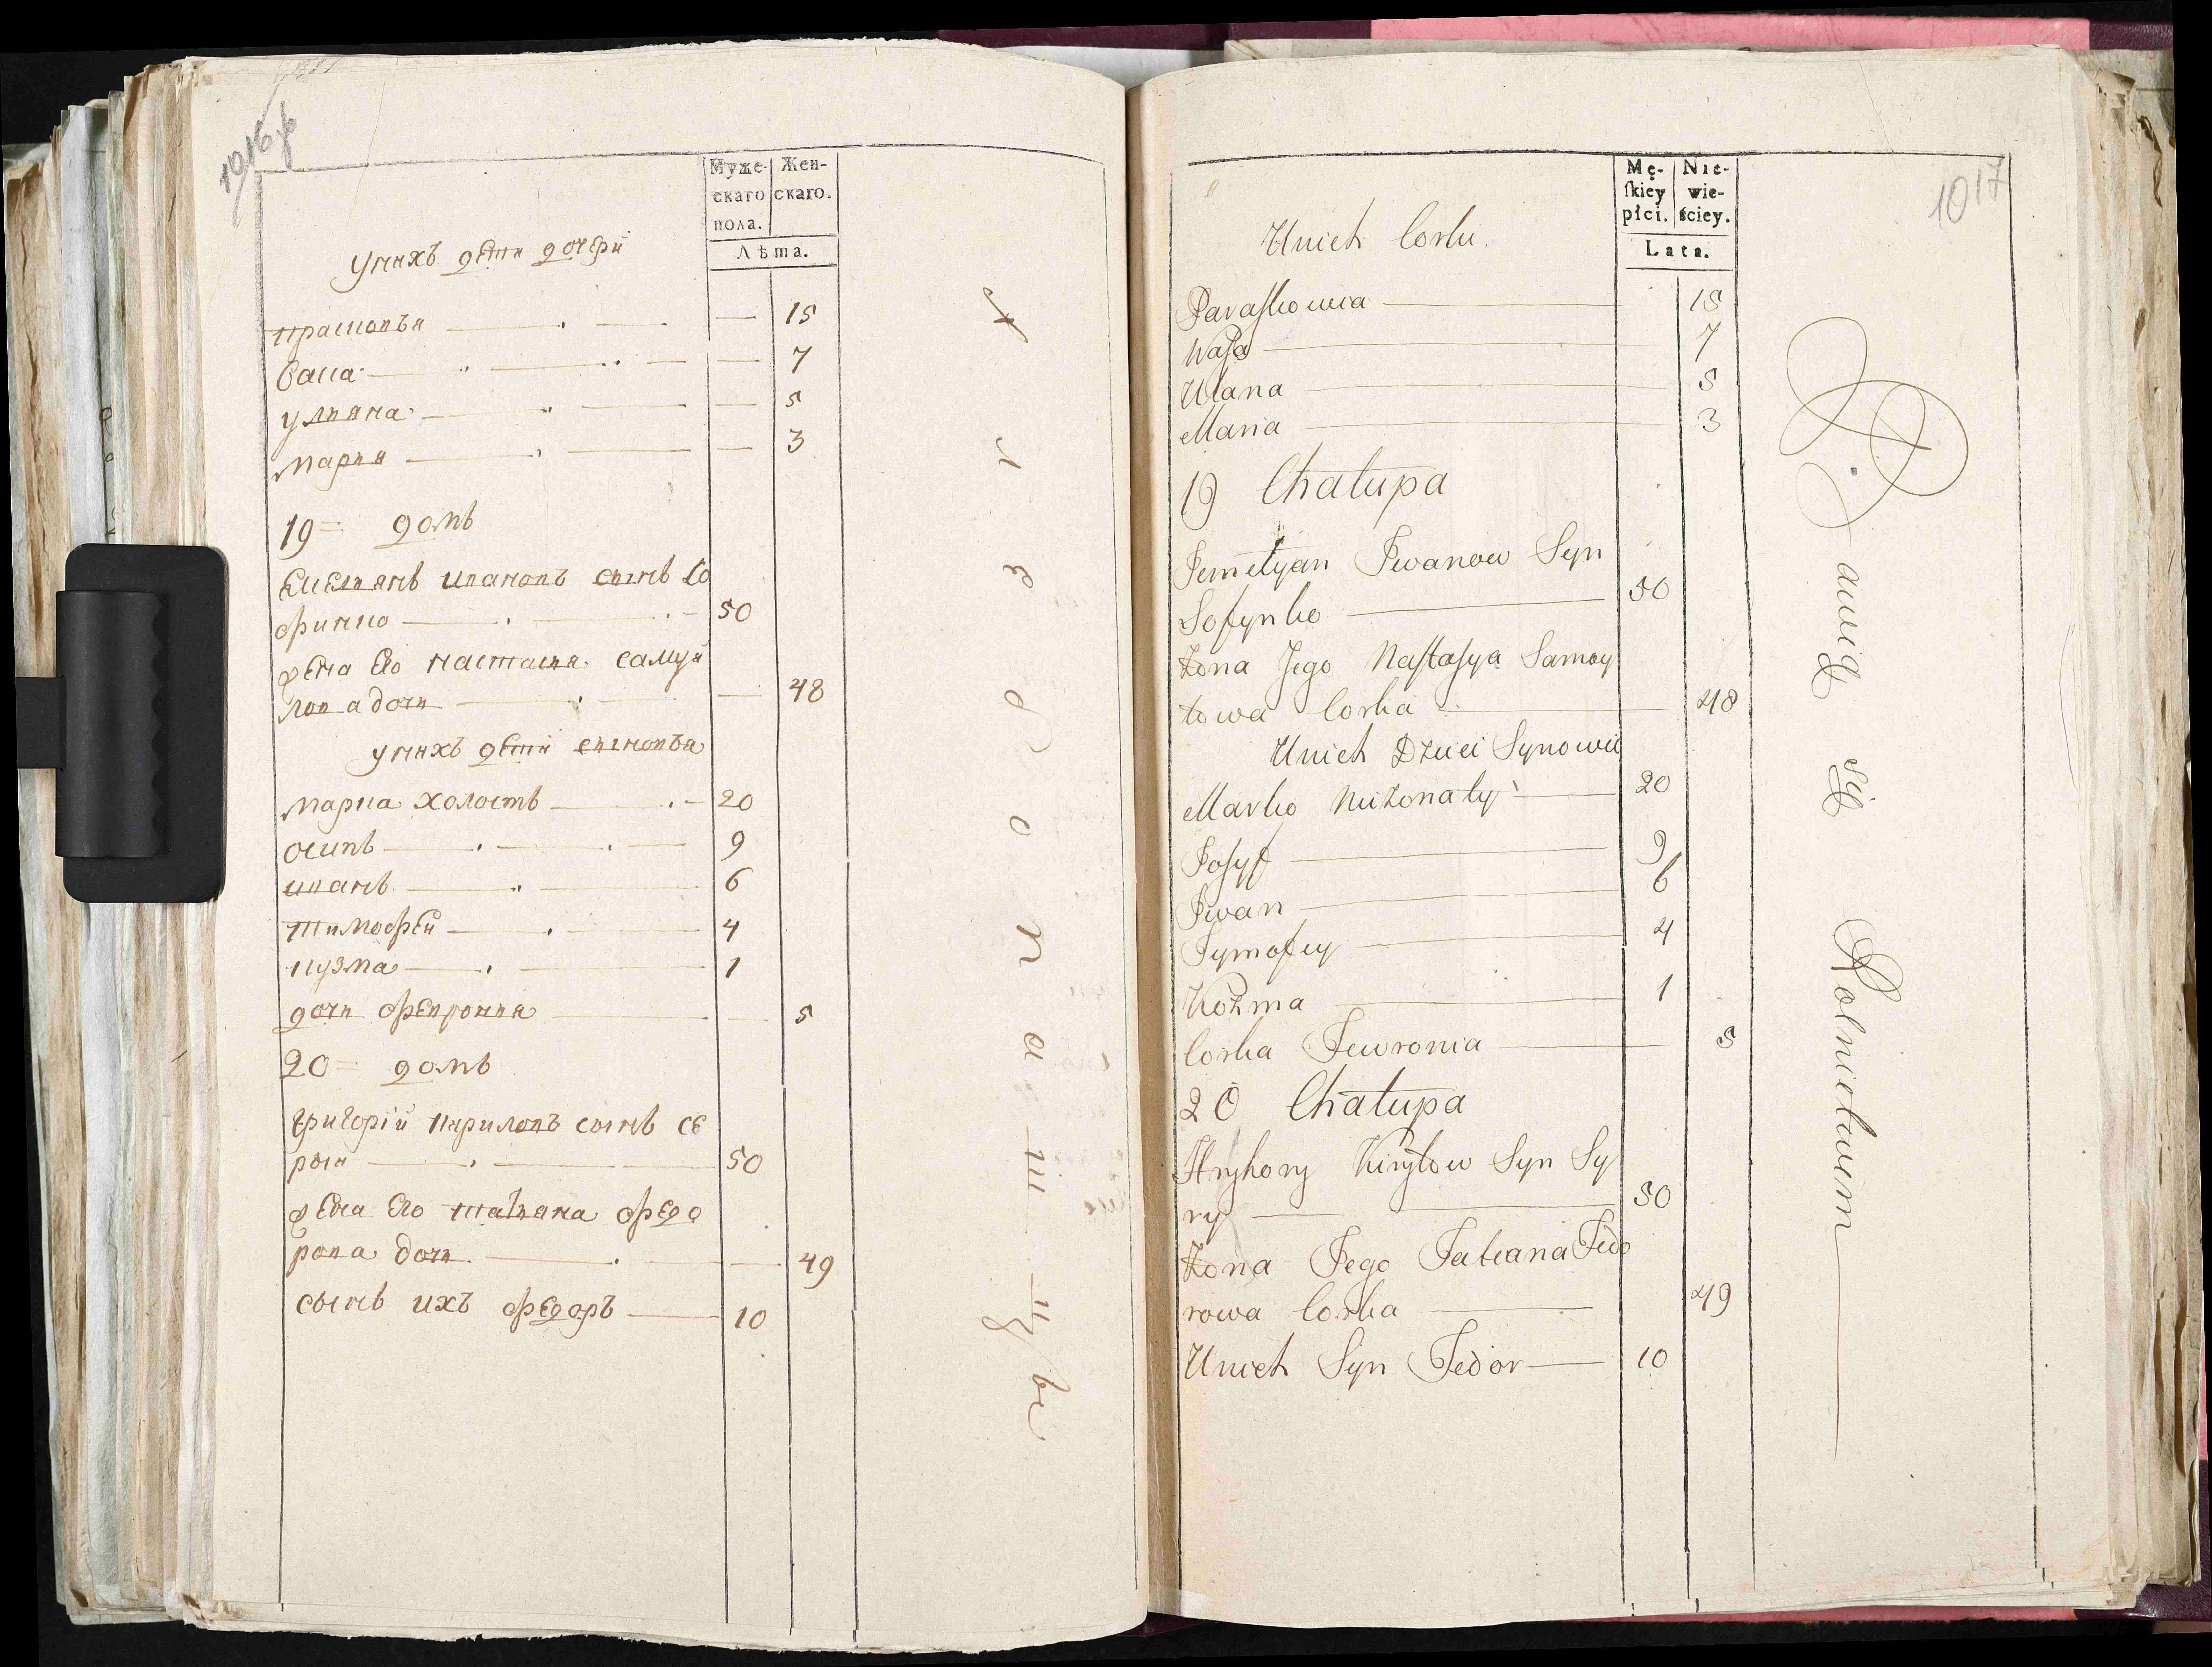 1016 об
Муже-
скаго
пола.
Жен-
скаго.
Лѣта.
У нихъ дети дочери
прасковья — 15
васса — 7
ульяна — 5
мария — 3
19 = домъ
Емельянъ ивановъ сынъ со
финко — 50
жена его настасия самуй
лова дочь — 48
у нихъ дети сыновья
марка холостъ — 20
осипъ — 9
иванъ — 6
тимофей — 4
кузма — 1
дочь феврония — 5
20 = домъ
григорій кириловъ сынъ се
рый — 50
жена его татьяна федо
рова дочь — 49
сынъ ихъ федоръ — 10
хлебопашцы
1017
Mę-
skiey
płci.
Nie-
wie-
ściey.
Lata.
Unich Corki
Paraskowia — 15
Wasa — 7
Ulana — 5
Maria — 3
19 Chałupa
Jemelyan Iwanow Syn
Sofynko — 50
Zona Jego Nastasya Samoy
łowa Corka — 48
Unich Dzieci Synowie
Marko Niezonaty — 20
Josyf — 9
Iwan — 6
Tymofiey — 4
Kozma — 1
Corka Fewronia — 5
20 Chałupa
Hryhory Kiryłow Syn Sy
ry — 50
Zona Jego Tatiana Fedo
rowa Corka — 49
Unich Syn Fedor — 10
Bawią się Rolnictwem